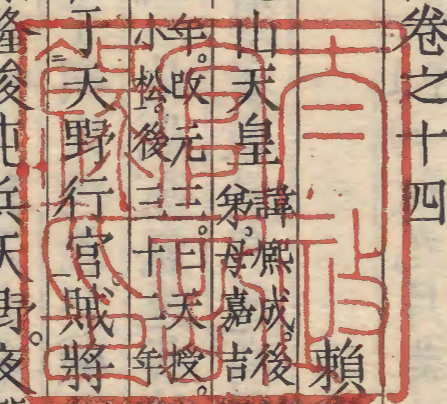 卷之十四
賴
山天皇
諱熙成。後
弟。母嘉吉
年。改元三。曰天授。
小松。後三十二年
于天野行宮。賊將
隆俊屯兵天野。夜